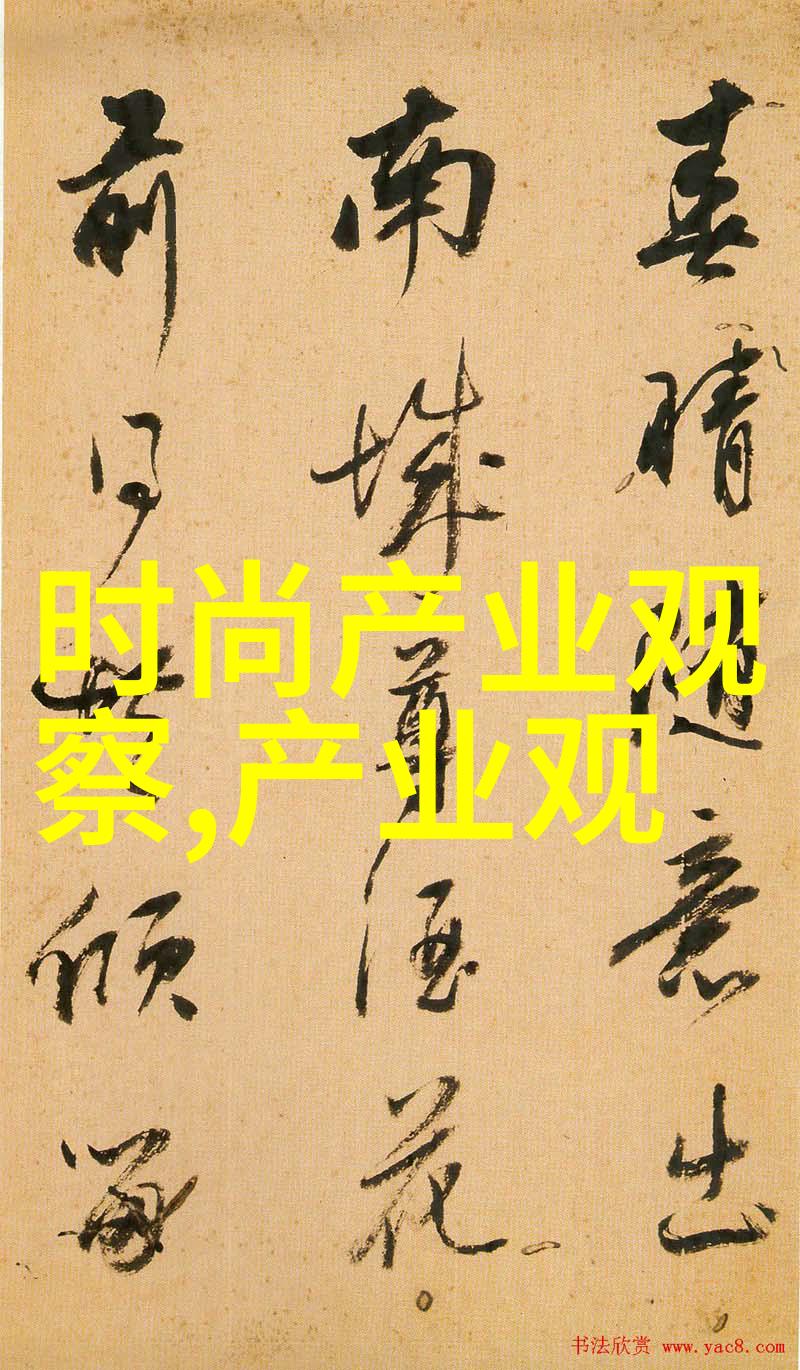 春晴随意出
南城尊酒花
前日暮倾
时尚产业观
察,产业观
书法欣赏 www.yac8.com